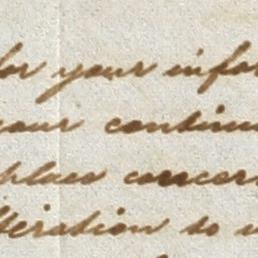 for your infor
your continu
places concer
lteration to u